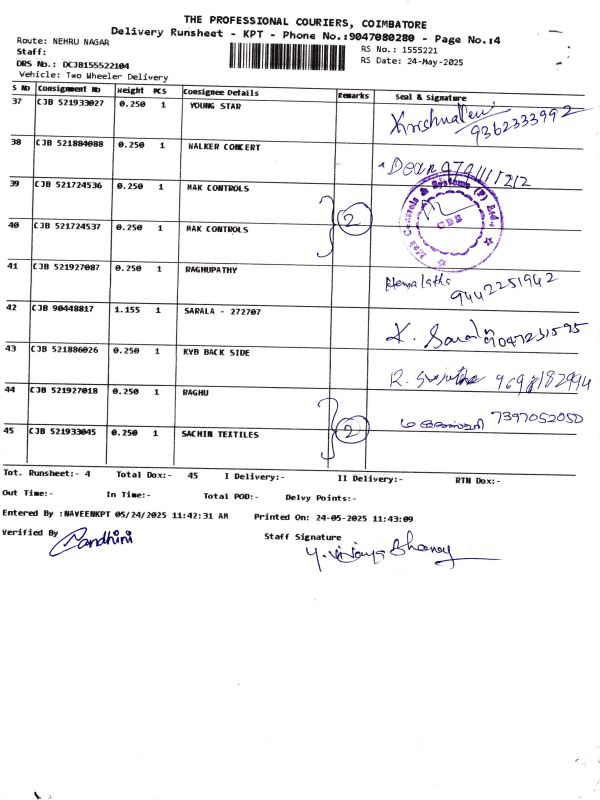 THE PROFESSIONAL COURIERS, COIMBATORE
Delivery Runsheet - KPT - Phone No.:9047080280 - Page No.:4
Route: NEHRU NAGAR
RS No.: 1555221
Staff:
RS Date: 24-May-2025
DRS No.: DCJB155522104
Vehicle: Two Wheeler Delivery
S No Consignment No Weight PCS Consignee Details Remarks Seal & Signature
37 CJB 521933027 0.250 1 YOUNG STAR
9362333992
38 CJB 521884088 0.250 1 WALKER CONCERT
39 CJB 521724536 0.250 1 MAK CONTROLS
2
Mak Controls & Systems (P) Ltd.
CBE
40 CJB 521724537 0.250 1 MAK CONTROLS
41 CJB 521927087 0.250 1 RAGHUPATHY
Hemalatha
9442251942
42 CJB 90448817 1.155 1 SARALA - 272707
K. Sarala
43 CJB 521886026 0.250 1 KVB BACK SIDE
R. Sujatha
44 CJB 521927018 0.250 1 RAGHU
2
7397052050
45 CJB 521933045 0.250 1 SACHIN TEXTILES
Tot. Runsheet:- 4 Total Dox:- 45 I Delivery:- II Delivery:- RTN Dox:-
Out Time:- In Time:- Total POD:- Delvy Points:-
Entered By :NAVEENKPT 05/24/2025 11:42:31 AM Printed On: 24-05-2025 11:43:09
Verified By Nandhini
Staff Signature